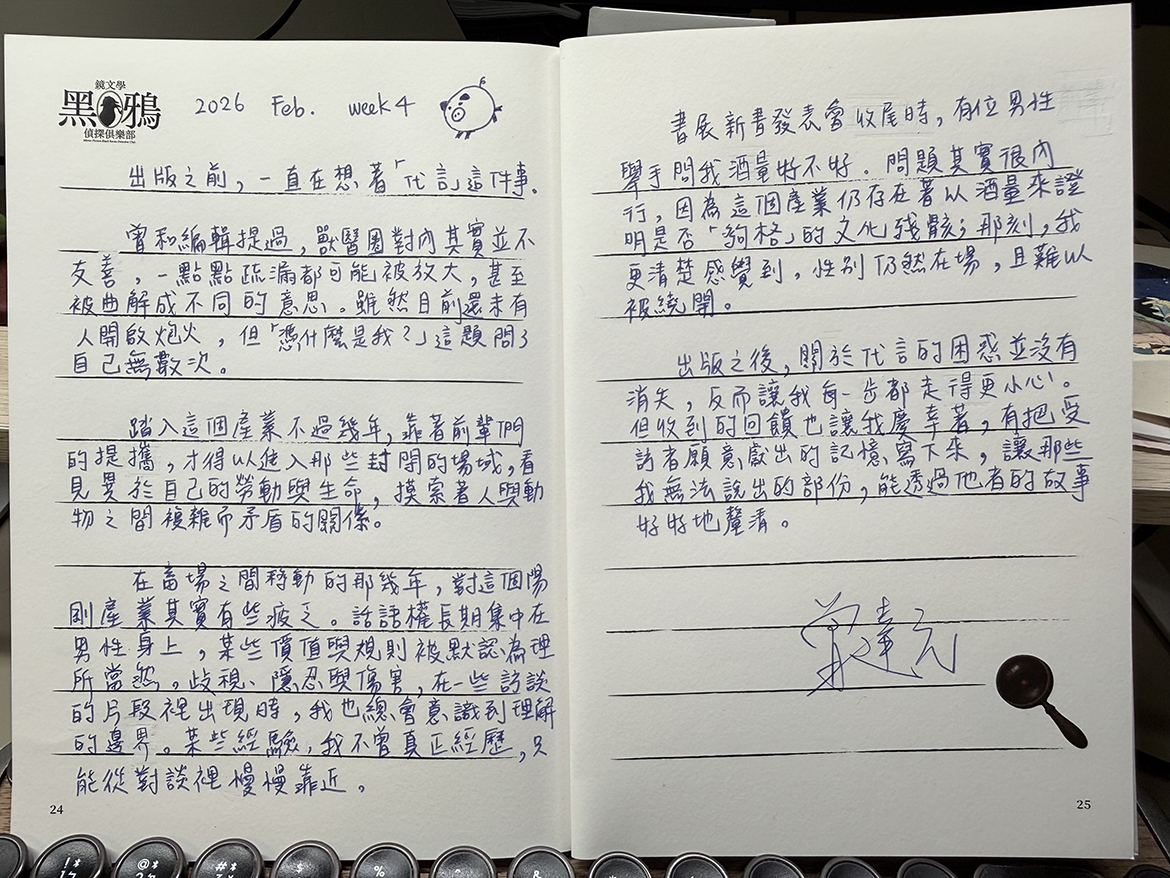 鏡文學
黑鴉
偵探俱樂部
2026 Feb. week 4
出版之前，一直在想著「代言」這件事。
曾和編輯提過，獸醫圈對內其實並不
友善，一點點疏漏都可能被放大，甚至
被曲解成不同的意思。雖然目前還未有
人開啟炮火，但「憑什麼是我？」這題問了
自己無數次。
踏入這個產業不過幾年，靠著前輩們
的提攜，才得以進入那些封閉的場域，看
見異於自己的勞動與生命，摸索著人與動
物之間複雜而矛盾的關係。
在畜場之間移動的那幾年，對這個陽
剛產業其實有些疲乏。話語權長期集中在
男性身上，某些價值與規則被默認為理
所當然。歧視、隱忍與傷害，在一些訪談
的片段裡出現時，我也總會意識到理解
的邊界。某些經驗，我不曾真正經歷，只
能從對談裡慢慢靠近。
24
書展新書發表會收尾時，有位男性
舉手問我酒量好不好。問題其實很內
行，因為這個產業仍存在著以酒量來證
明是否「夠格」的文化殘骸；那刻，我
更清楚感覺到，性別仍然在場，且難以
被繞開。
出版之後，關於代言的困惑並沒有
消失，反而讓我每一步都走得更小心。
但收到的回饋也讓我慶幸著，有把受
訪者願意獻出的記憶寫下來，讓那些
我無法說出的部份，能透過他者的故事
好好地釐清。
25
!
@
#
$
%
&